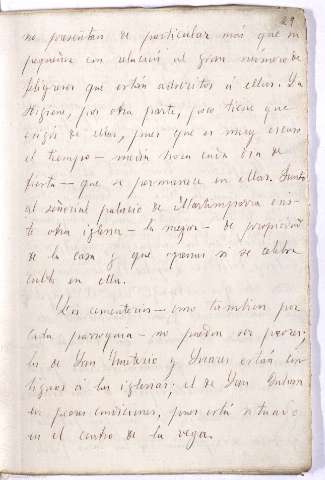 29
no presentan de particular más que su
pequeñez con relación al gran número de
feligreses que están adscritos á ellas. La
Higiene, por otra parte, poco tiene que
exigir de ellas, pues que es muy escaso
el tiempo — media hora cada día de
fiesta — que se permanece en ellas. Junto
al señorial palacio de exis-
te otra iglesia — la mayor — de propiedad
de la casa y que apenas si se celebra
culto en ella.
Los cementerios — uno tambien por
cada parroquia — no pueden ser peores;
los de San Emeterio y Suares están con-
tiguos á las iglesias; el de San
en peores condiciones, pues está situado
en el centro de la vega.